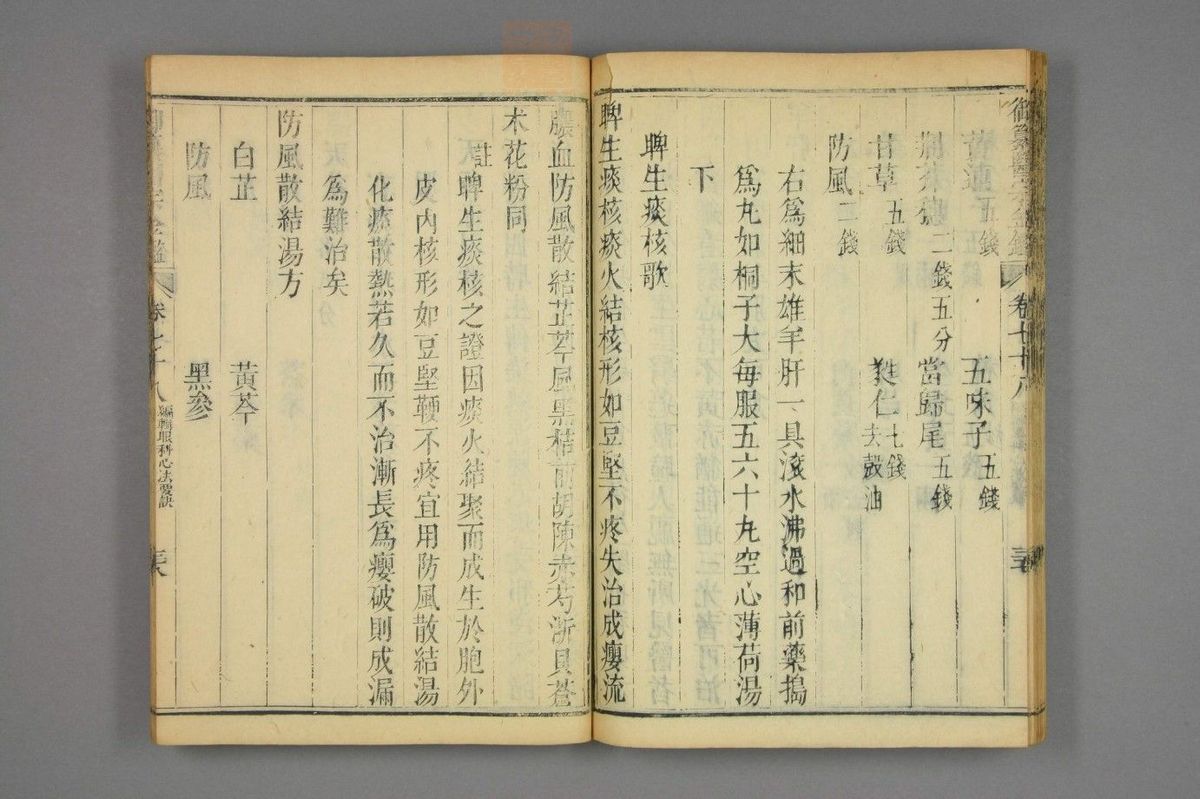 御纂醫宗金鑑 卷七十八
黃連五錢 五味子五錢
荊芥穗二錢五分 當歸尾五錢
甘草五錢 甤仁七錢去殼油
防風二錢
右爲細末雄羊肝一具滾水沸過和前藥搗
爲丸如桐子大每服五六十丸空心薄荷湯
下
脾生痰核歌
脾生痰核痰火結核形如豆堅不疼失治成癭流
膿血防風散結芷芩風黑桔前胡陳赤芍浙貝蒼
朮花粉同
註脾生痰核之證因痰火結聚而成生於胞外
皮內核形如豆堅鞕不疼宜用防風散結湯
化痰散熱若久而不治漸長爲癭破則成漏
爲難治矣
防風散結湯方
白芷 黃芩
防風 黑參
卷七十八 編輯眼科心法要訣